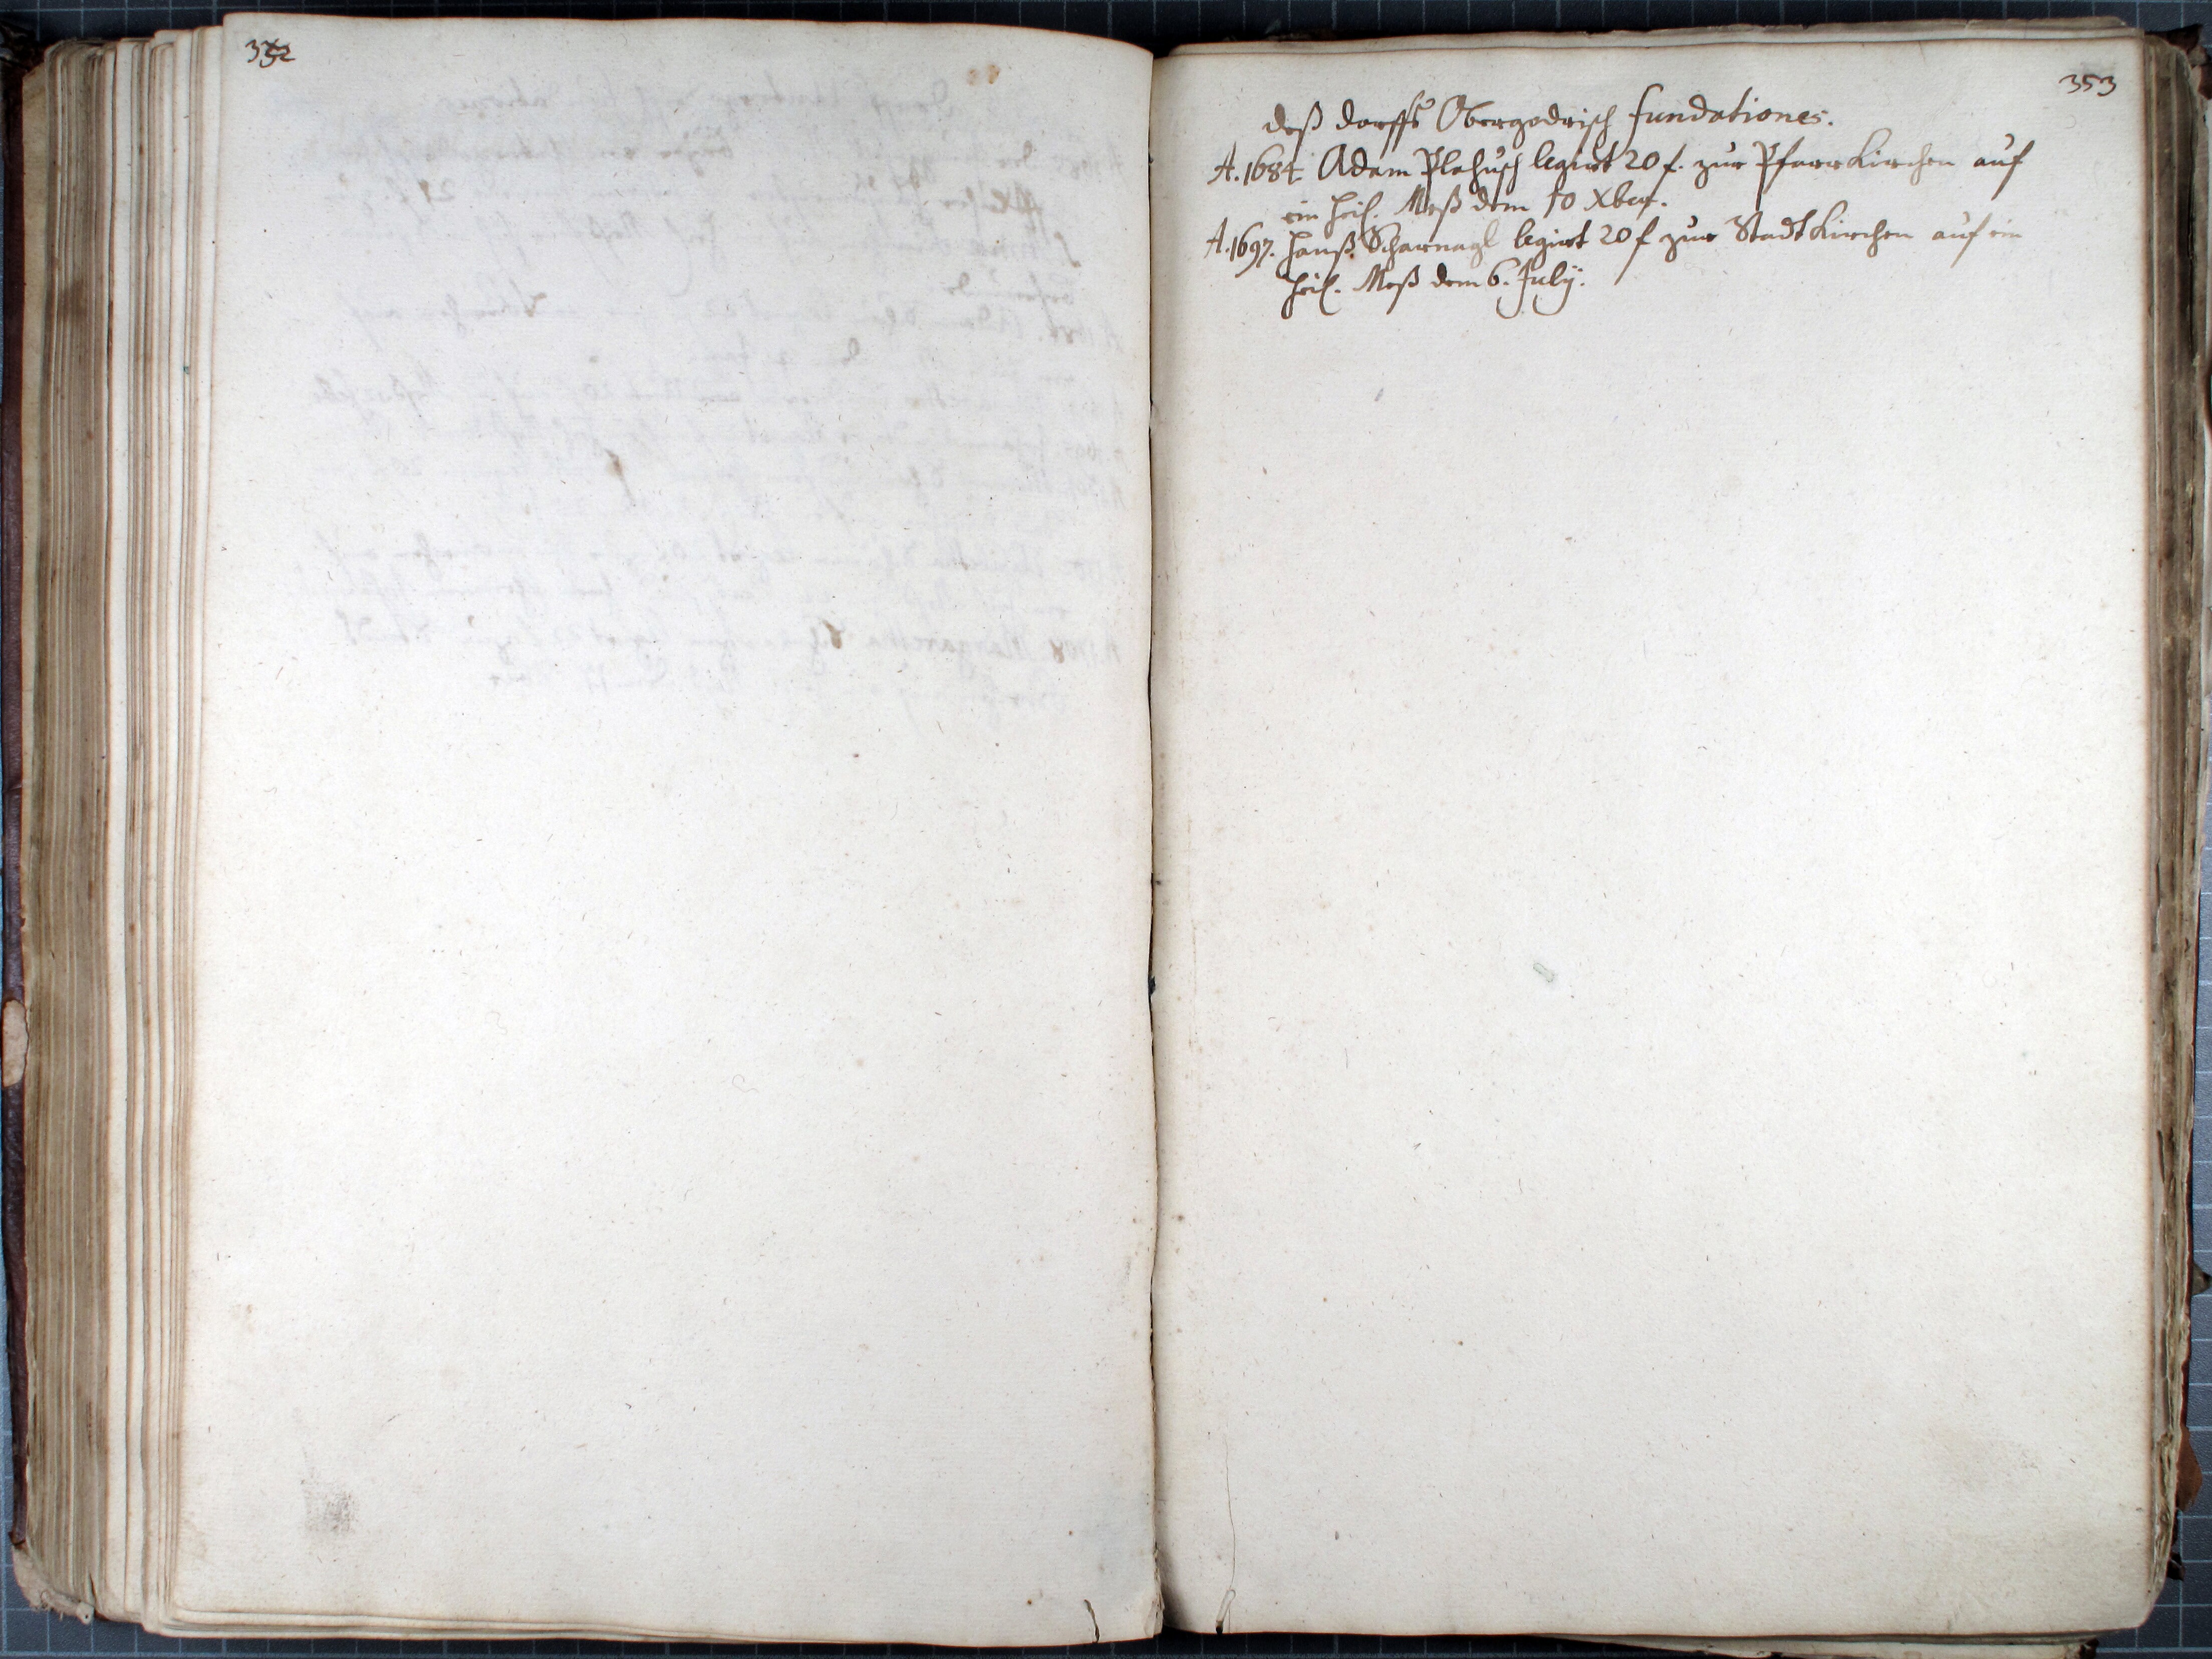 352
353
deß dorffs Obergodrisch fundationes.
A. 1684 Adam Plahusch legirt 20 f. zur Pfarrkirchen auf
ein heil. Meß dem 10 Xber.
A. 1697. Hanß Scharnagl legirt 20 f zur Stadtkirchen auf ein
heil. Meß dem 6. July.